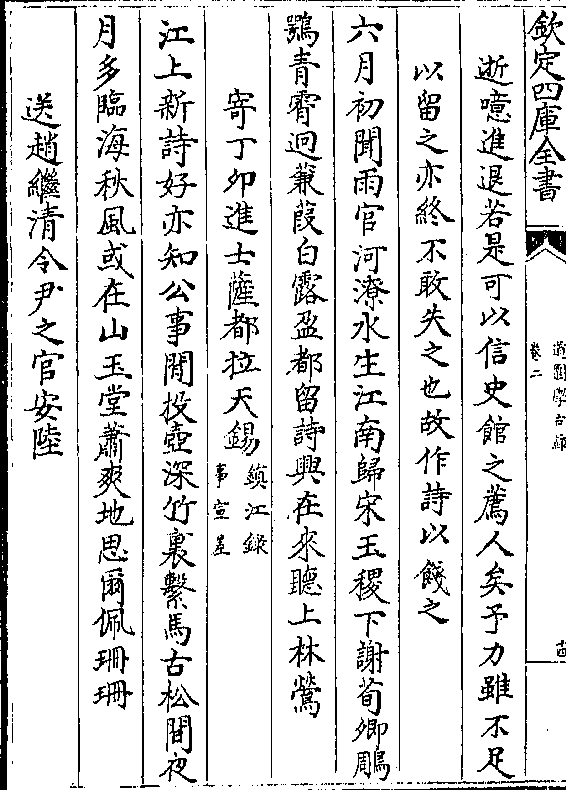 欽定四庫全書
道園學古錄
卷二
逝噫進退若是可以信史館之薦人矣予力雖不足
以留之亦終不敢失之也故作詩以餞之
六月初聞雨官河潦水生江南歸宋玉稷下謝荀卿鵰
鶚青霄迥蒹葭白露盈都留詩興在來聽上林鶯
寄丁卯進士薩都拉天錫鎮江錄事宣差
江上新詩好亦知公事閒投壺深竹裏繫馬古松間夜
月多臨海秋風或在山玉堂蕭爽地思爾佩珊珊
送趙繼清令尹之官安陸